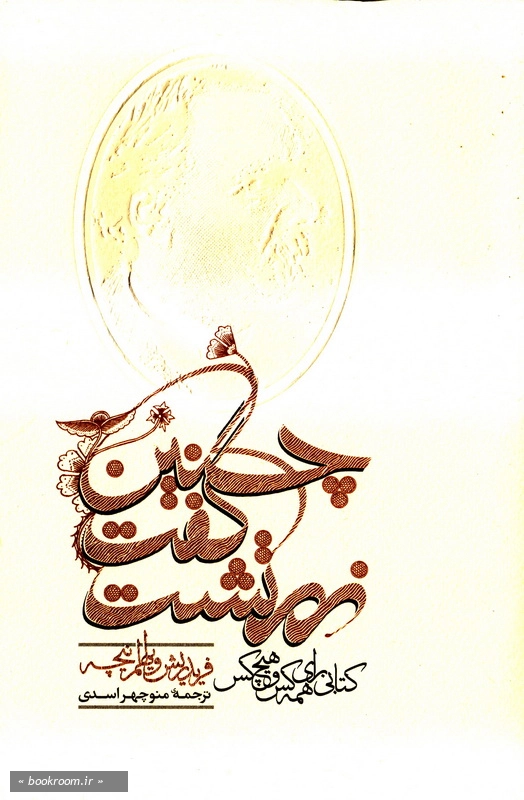 چنین
گفت
زرتشت
کتابی برای همه‌کس و هیچ‌کس
فریدریش ویلهلم نیچه
ترجمهٔ منوچهر اسدی
« bookroom.ir »